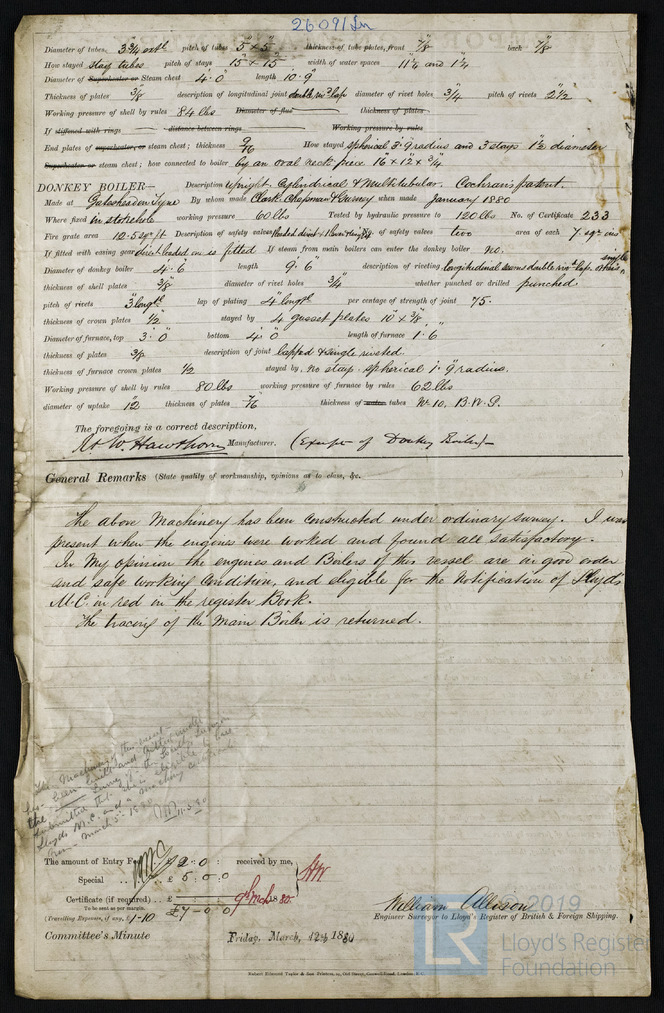 26091 Lrn
Diameter of tubes, 3 3/4 ext^l pitch of tubes 5" x 5" thickness of tube plates, front 7/8 back 7/8
How stayed stay tubes pitch of stays 15" x 15" width of water spaces 11 1/4 and 1 1/4
Diameter of Superheater or Steam chest 4.0" length 10.9"
Thickness of plates 3/8 description of longitudinal joint double riv^d lap diameter of rivet holes 3/4 pitch of rivets 2 1/2
Working pressure of shell by rules 84 lbs Diameter of flue thickness of plates
If stiffened with rings distance between rings Working pressure by rules
End plates of superheater, or steam chest; thickness 9/16 How stayed spherical 3" radius and 3 stays 1 1/2 diameter
Superheater or steam chest; how connected to boiler by an oval neck piece 16" x 12" x 3/4
DONKEY BOILER— Description Upright Cylindrical & Multitubular. Cochran's patent.
Made at Gateshead on Tyne By whom made Clark, Chapman & Gurney when made January 1880
Where fixed in stokehole working pressure 60 lbs Tested by hydraulic pressure to 120 lbs No. of Certificate 233
Fire grate area 12.5 sq. ft Description of safety valves No. of safety valves two area of each 7 sq. ins
If fitted with easing gear direct loaded on is fitted If steam from main boilers can enter the donkey boiler no.
Diameter of donkey boiler 4.6" length 9.6" description of riveting longitudinal seams double riv^d lap. single
thickness of shell plates 3/8 diameter of rivet holes 3/4 whether punched or drilled punched
pitch of rivets 3" long^th lap of plating 4" long^th per centage of strength of joint 75.
thickness of crown plates 1/2 stayed by 4 gusset plates 10" x 3/8
Diameter of furnace, top 3.0" bottom 4.0" length of furnace 1.6"
thickness of plates 3/8 description of joint lapped & single riveted.
thickness of furnace crown plates 1/2 stayed by no stays. spherical 1.9" radius.
Working pressure of shell by rules 80 lbs working pressure of furnace by rules 62 lbs
diameter of uptake 12 thickness of plates 7/16 thickness of water tubes No. 10. B.W.G.
The foregoing is a correct description,
R & W. Hawthorn Manufacturer. (Except of Donkey Boiler)
General Remarks (State quality of workmanship, opinions as to class, &c.
The above Machinery has been constructed under ordinary survey. I was
present when the engines were worked and found all satisfactory.
In my opinion the engines and Boilers of this vessel are in good order
and safe working condition, and eligible for the Notification of Lloyd's
M.C. in red in the register Book.
The tracing of the Main Boiler is returned.
Lloyds M.C.
The amount of Entry Fee £ 2 : 0 : received by me,
Special .. £ 5 : 0 : 0
Certificate (if required) .. £ 9th Mch 1880
To be sent as per margin.
(Travelling Expenses, if any, £ 1-10 £7 - 0 - 0
William Allison
Engineer Surveyor to Lloyd's Register of British & Foreign Shipping.
Committee's Minute Friday, March, 12th 1880
2019
LR
Lloyd's Register
Foundation